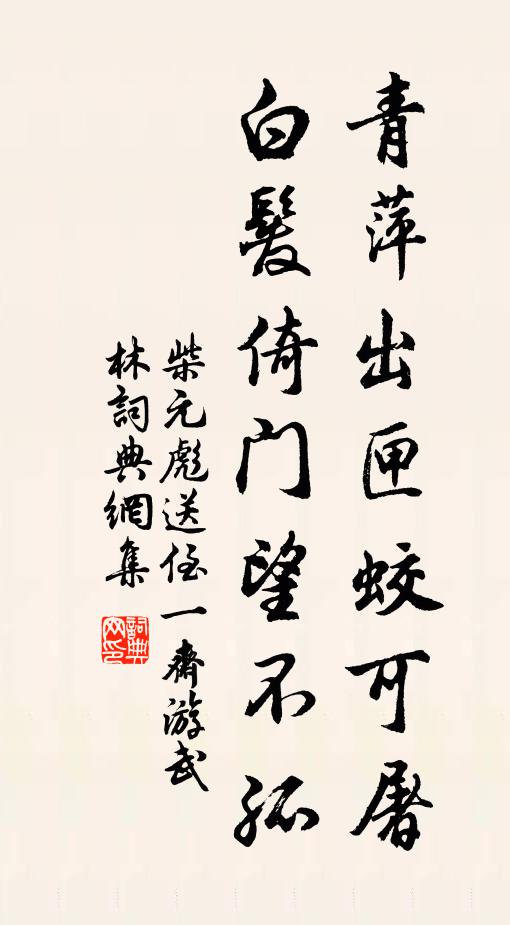 青萍出匣蛟可屠
白髮倚門望不孤
柴元彪送侄一齋游武
林詞典網集
詞典网印